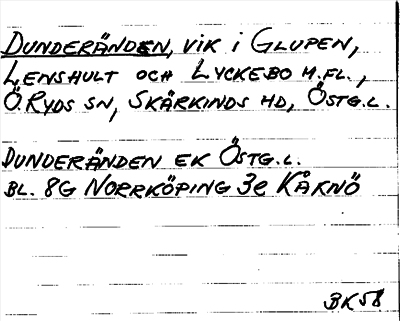 DUNDERÄNDEN, VIK I GLUPEN,
LENSHULT OCH LYCKEBO M.FL.,
Ö. RYDS SN, SKÄRKINDS HD, ÖSTG.L.
DUNDERÄNDEN EK ÖSTG.L.
BL. 8G NORRKÖPING 3e KÅRNÖ
BK58